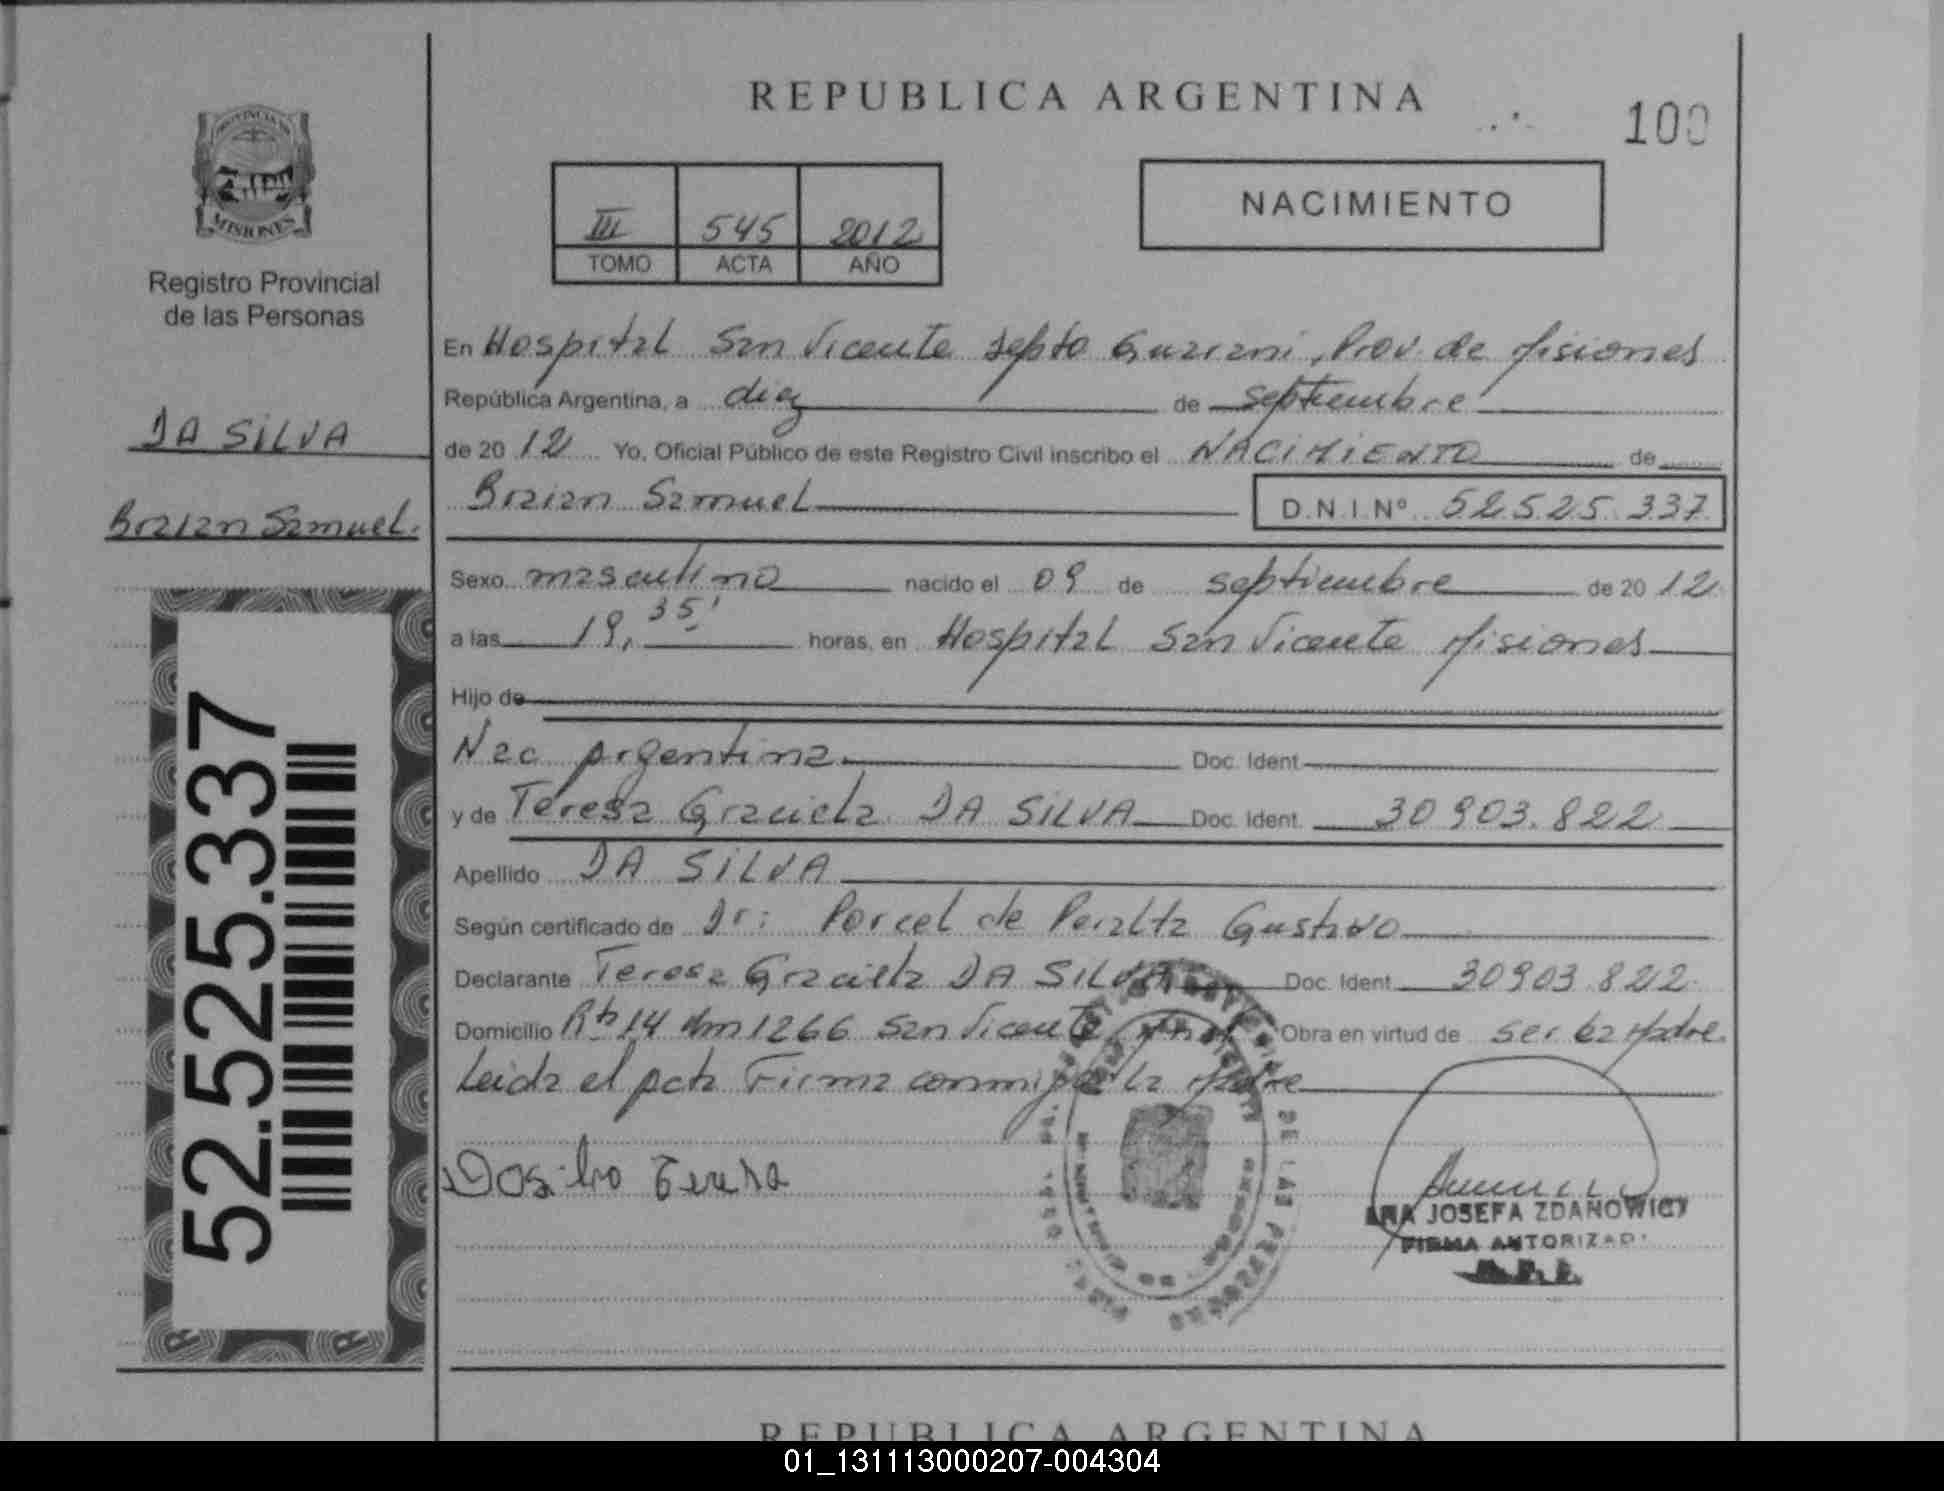 REPUBLICA ARGENTINA
100
PROVINCIA DE
MISIONES
Registro Provincial
de las Personas
DA SILVA
Braian Samuel.
52.525.337
III 545 2012
TOMO ACTA AÑO
NACIMIENTO
En Hospital San Vicente Depto Guarani, Prov. de Misiones
República Argentina, a diez de septiembre
de 2012 Yo, Oficial Público de este Registro Civil inscribo el NACIMIENTO de
Braian Samuel D.N.I.Nº 52.525.337
Sexo masculino nacido el 09 de septiembre de 2012
a las 19,35' horas, en Hospital San Vicente Misiones
Hijo de
Nac Argentina Doc. Ident.
y de Teresa Graciela DA SILVA Doc. Ident. 30903.822
Apellido DA SILVA
Según certificado de Dr: Porcel de Peralta Gustavo
Declarante Teresa Graciela DA SILVA Doc. Ident. 30903.822
Domicilio Rta 14 Km 1266 San Vicente Mnes Obra en virtud de ser la Madre.
Leida el Acta Firma conmigo la Madre
Dasilva Teresa
DE LAS PERSONAS
ANA JOSEFA ZDANOWICZ
FIRMA AUTORIZADA
REPUBLICA ARGENTINA
01_131113000207-004304